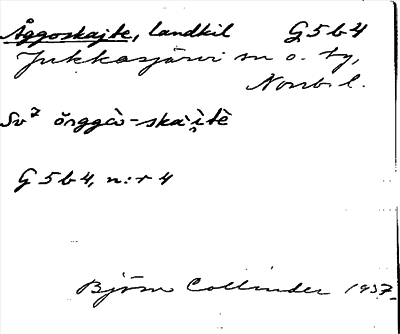 Åggoskajte, landkil G5b4
Jukkasjärvi sn o. tg,
Norrb. l.
Sv⁷ ŏnggȧ̀-skà·i̯tè
G5b4, n:r 4
Björn Collinder 1937